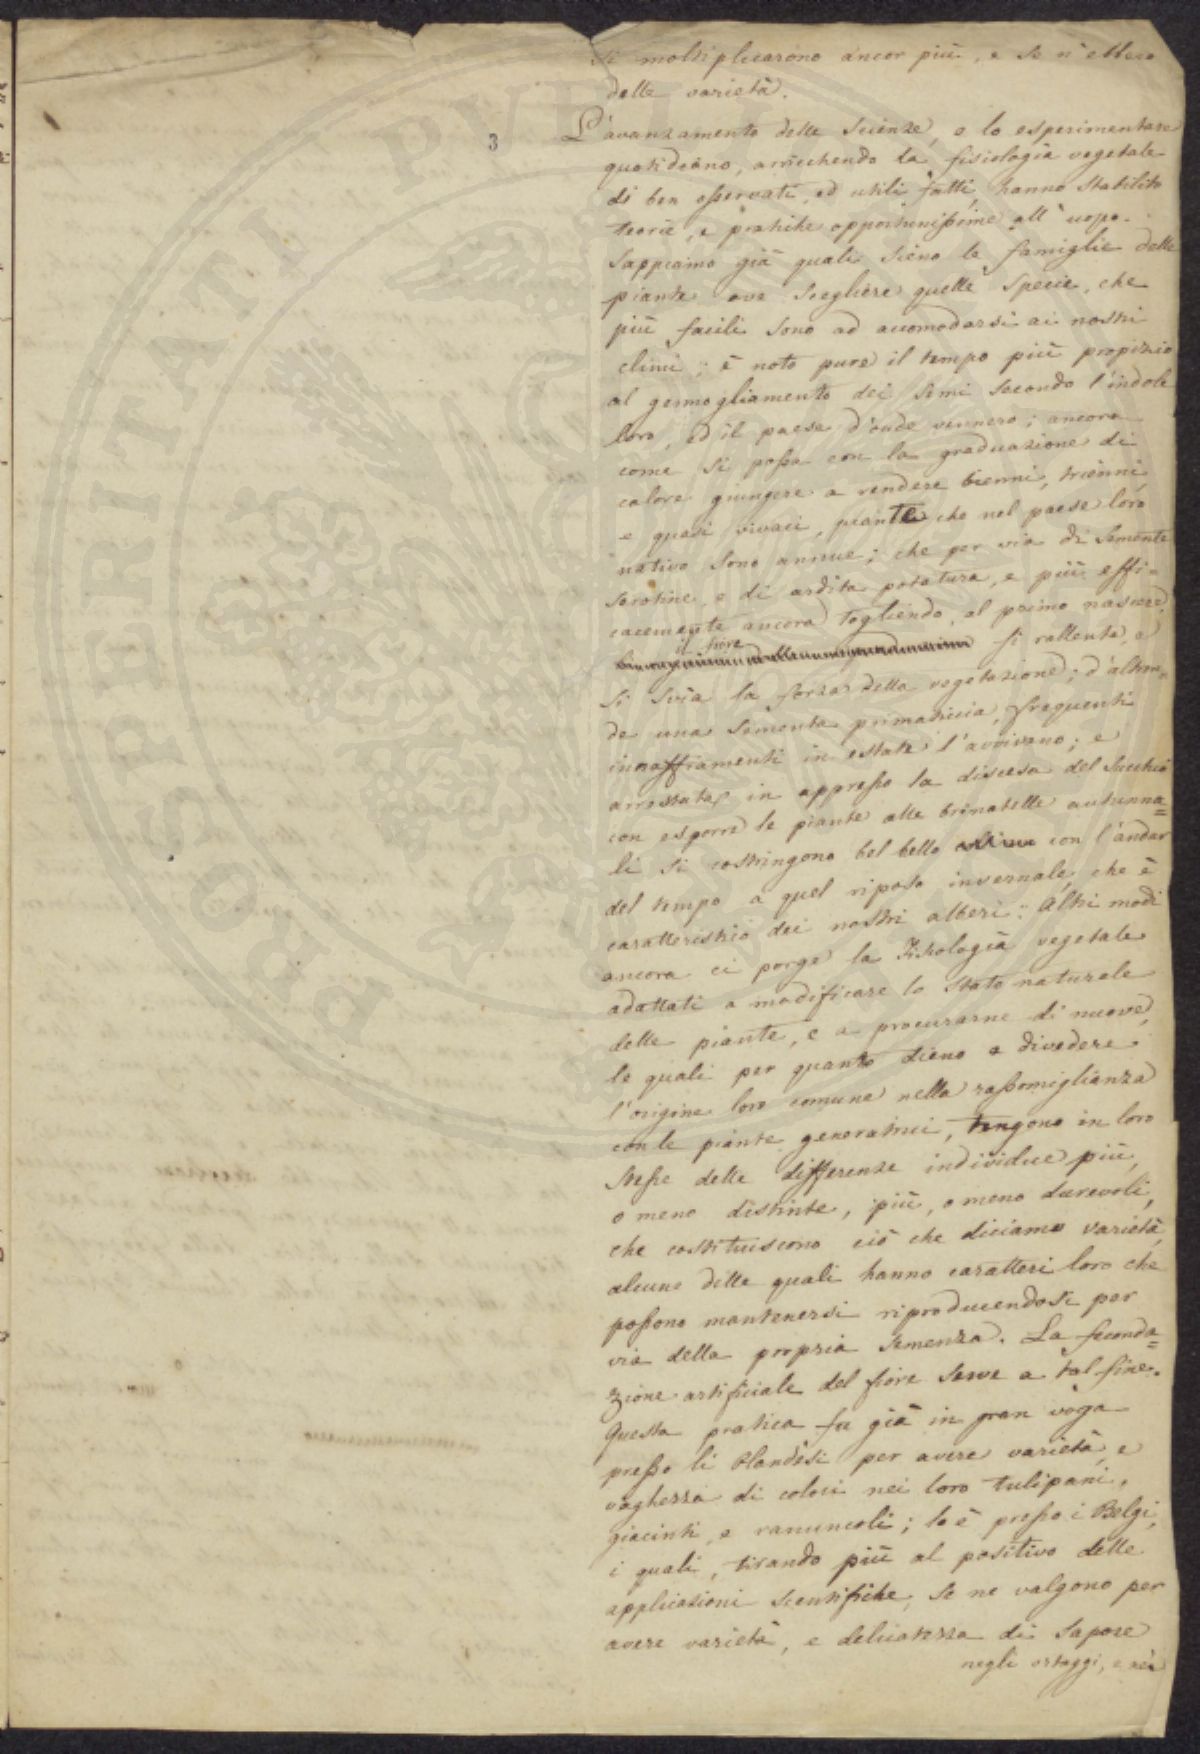 si moltiplicarono ancor più, e se n'ebbero
delle varietà.
3
L'avanzamento delle Scienze, e lo esperimentare
quotidiano, arricchendo la fisiologia vegetale
di ben osservati, ed utili fatti, hanno stabilito
teorie, e pratiche opportunissime all'uopo.
Sappiamo già quali sieno le famiglie delle
piante ove scegliere quelle specie, che
più facili sono ad accomodarsi ai nostri
climi; è noto pure il tempo più propizio
al germogliamento dei semi secondo l'indole
loro, ed il paese d'onde vennero; ancora
come si possa con la graduazione di
calore giungere a rendere bienni, trienni,
e quasi vivaci, piante che nel paese loro
nativo sono annue; che per via di semente
serotine, e di ardita potatura, e più effi-
cacemente ancora togliendo, al primo nascere
il fiore si rallenta, e
si svia la forza della vegetazione; d'altron-
de una sementa primaticcia, frequenti
innaffiamenti in estate l'avvivano; e
arrestata in appresso la discesa del succhio
con esporre le piante alle brinatelle autunna=
li si costringono bel bello con l'andar
del tempo a quel riposo invernale, che è
caratteristico dei nostri alberi: Altri modi
ancora ci porge la Fisiologia vegetale
adattati a modificare lo stato naturale
delle piante, e a procurarne di nuove,
le quali per quanto dieno a divedere
l'origine loro comune nella rassomiglianza
con le piante generatrici, tengono in loro
stesse delle differenze individue più,
o meno distinte, più, o meno durevoli,
che costituiscono ciò che diciamo varietà,
alcune delle quali hanno caratteri loro che
possono mantenersi riproducendosi per
via della propria semenza. La feconda=
zione artificiale del fiore serve a tal fine.
Questa pratica fu già in gran voga
presso li Olandesi per avere varietà, e
vaghezza di colori nei loro tulipani,
giacinti, e ranuncoli; lo è presso i Belgi,
i quali, tirando più al positivo delle
applicazioni scientifiche, se ne valgono per
avere varietà, e delicatezza di sapore
negli ortaggi, e nei
PROSPERITATI PVBLI